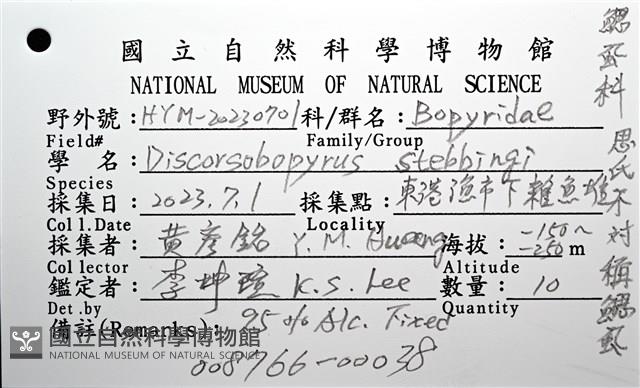 國立自然科學博物館
NATIONAL MUSEUM OF NATURAL SCIENCE
野外號：HYM-20230701 科/群名：Bopyridae
Field# Family/Group
學 名：Discorsobopyrus stebbingi
Species
採集日：2023.7.1 採集點：東港漁市下雜魚堆
Coll.Date Locality
採集者：黃彥銘 Y. M. Huang 海拔：-150~-250 m
Collector Altitude
鑑定者：李坤瑄 K.S. Lee 數量：10
Det.by Quantity
備註(Remarks)：95% Alc. Fixed
008766-00038
國立自然科學博物館
NATIONAL MUSEUM OF NATURAL SCIENCE
鰓蝨科 思氏不對稱鰓蝨